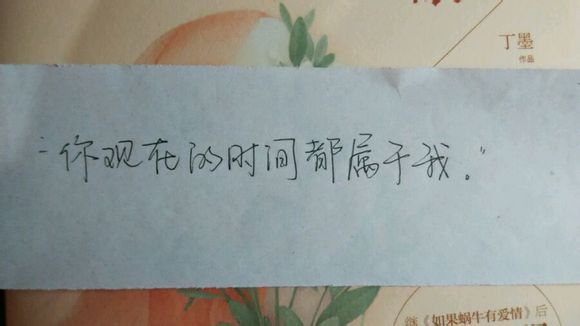 丁墨
作品
“你现在的时间都属于我。”
继《如果蜗牛有爱情》后